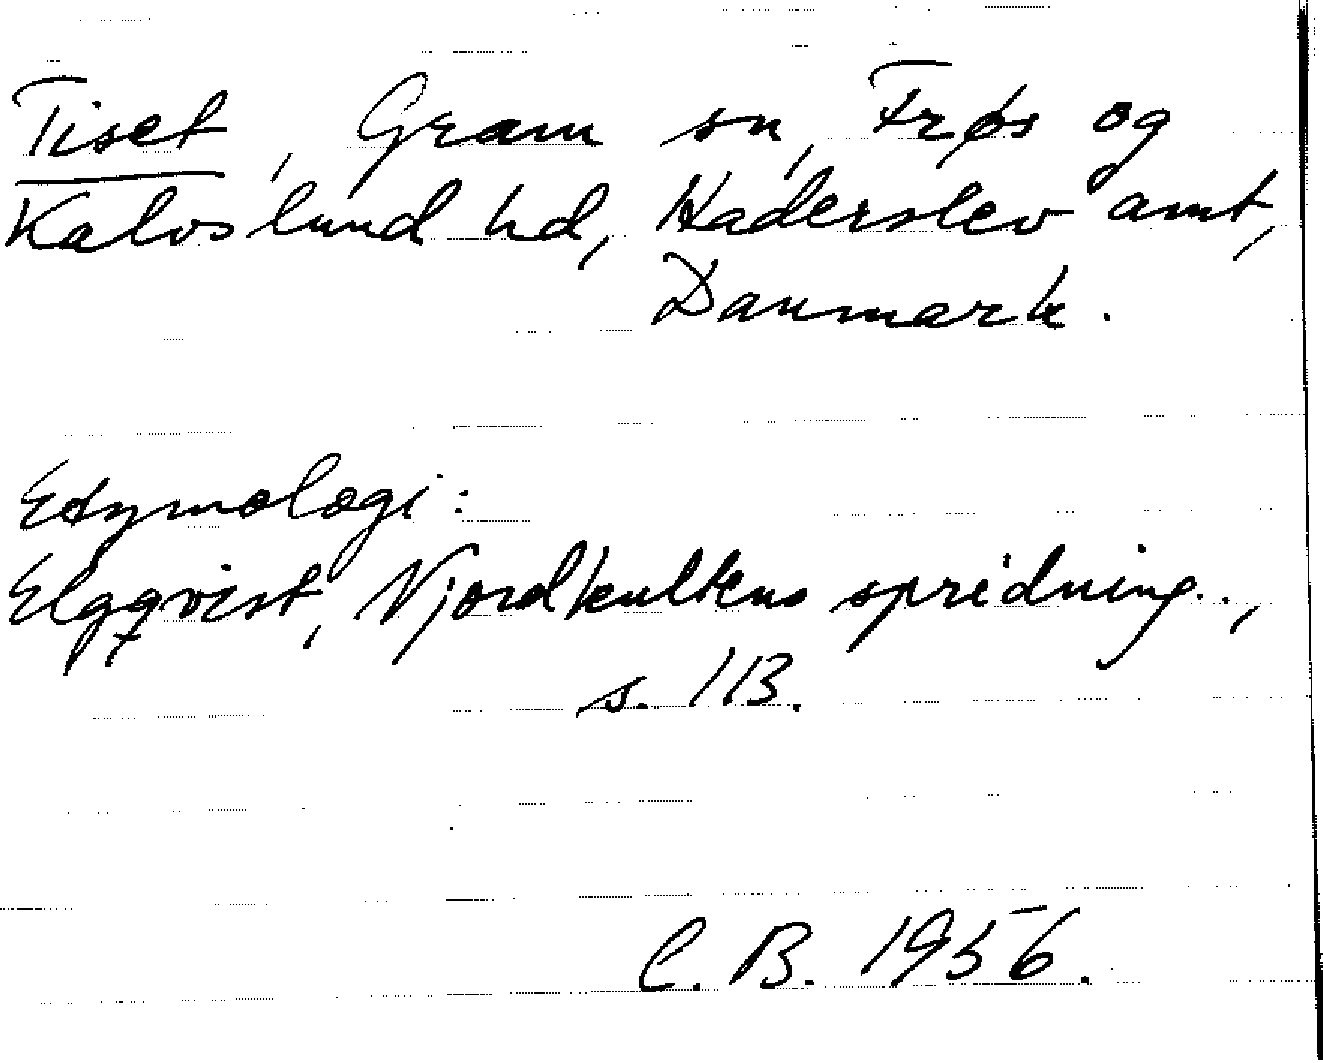 Tiset, Gram sn, Frøs og
Kalvslund hd, Haderslev amt,
Danmark.
Etymologi:
Elgqvist, Njordkultens spridning..,
s. 113.
C. B. 1956.